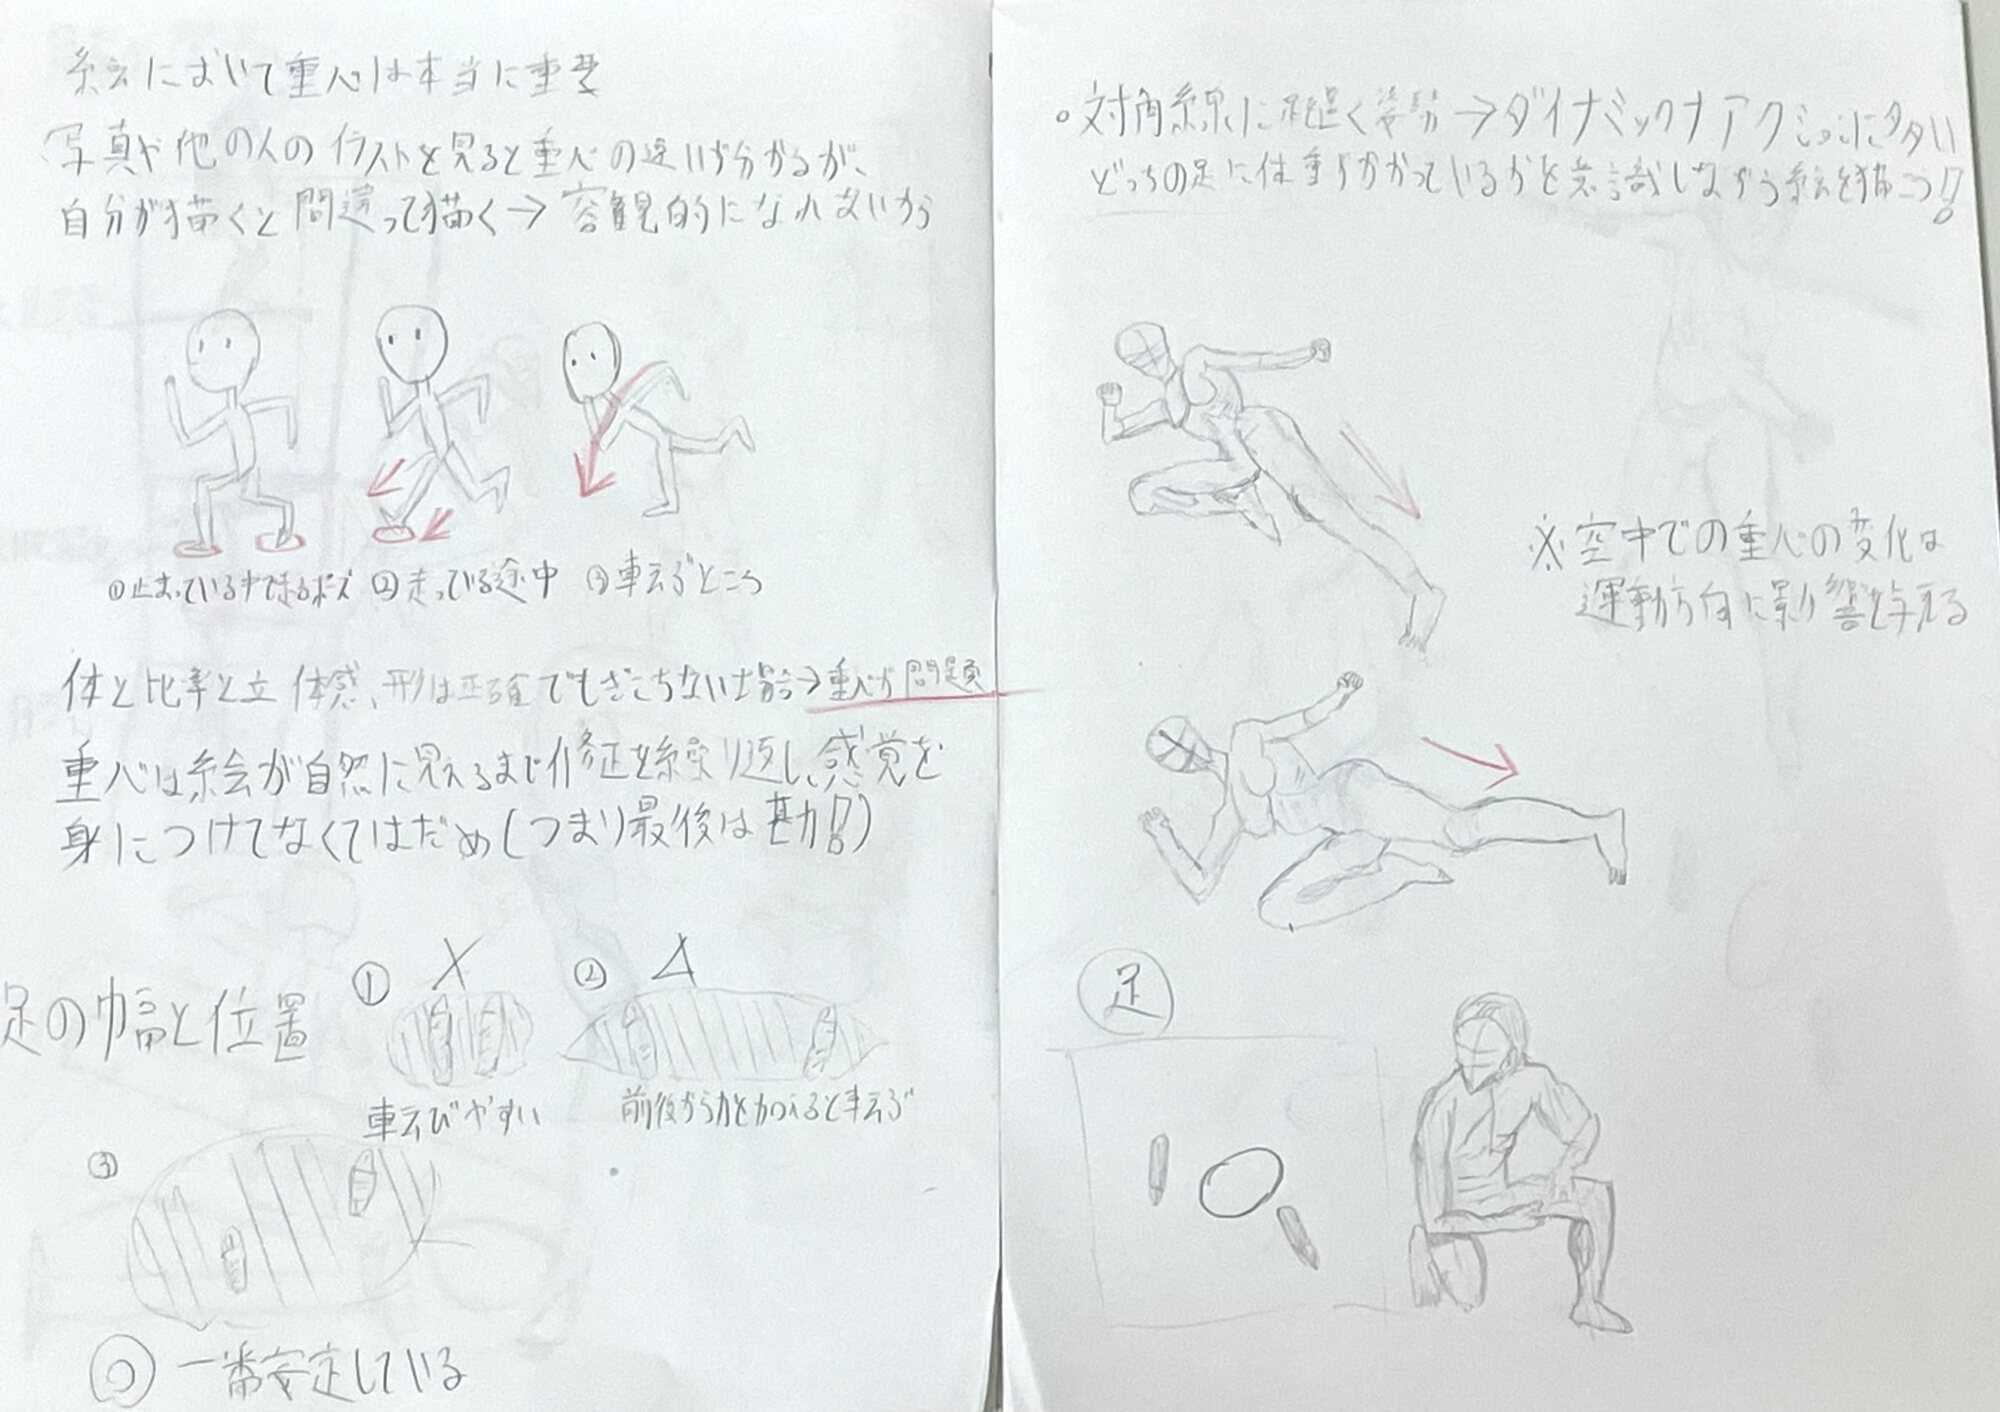 絵において重心は本当に重要
写真や他の人のイラストを見ると重心の違いが分かるが、
自分が描くと間違って描く→客観的になれないから
①止まっている中できるポーズ ②走っている途中 ③転ぶところ
体と比率と立体感、形は正確でもぎこちない場合→重心が問題
重心は絵が自然に見えるまで修正を繰り返し、感覚を
身につけてなくてはだめ(つまり最後は勘!!)
足の幅と位置
① ×
転びやすい
② △
前後から力を加えると転ぶ
③
◎ 一番安定している
。対角線に 続く姿勢→ダイナミックナアクションに多い
どっちの足に体重がかかっているかを意識しながら絵を描こう!!
※空中での重心の変化は
運動方向に影響を与える
足